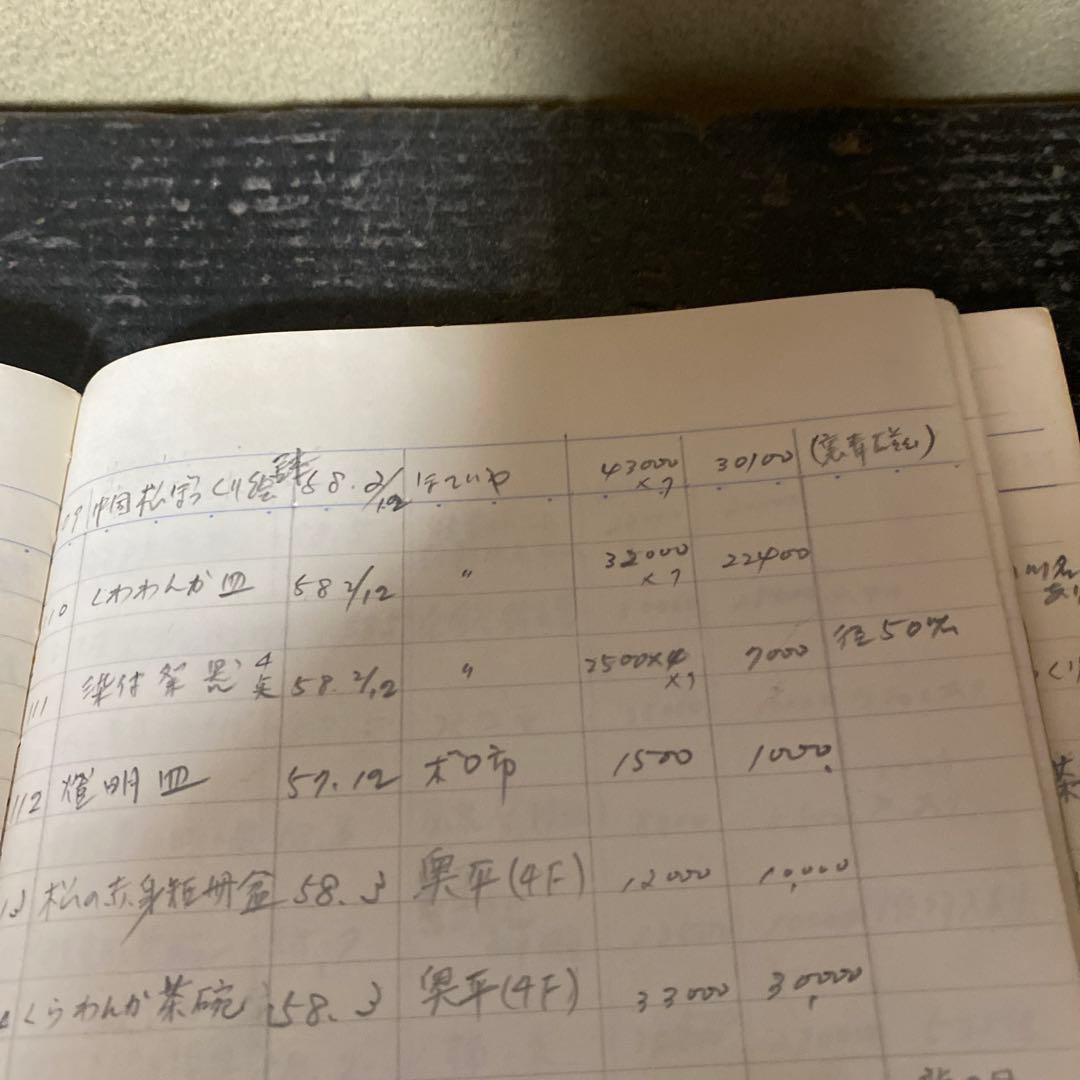 19 中国松ぼっくり 58.2/12 ほていや 43000×7 30100
10 くわわんか皿 58 2/12 〃 32000×7 22400
111 染付祭器 4点 58.2/12 〃 2500×4×7 7000 径50%
112 燈明皿 57.12 ボロ市 1500 1000.
13 松の赤身短冊盆 58.3 奥平(4F) 12000 10,000
くらわんか茶碗 58.3 奥平(4F) 33000 30,000